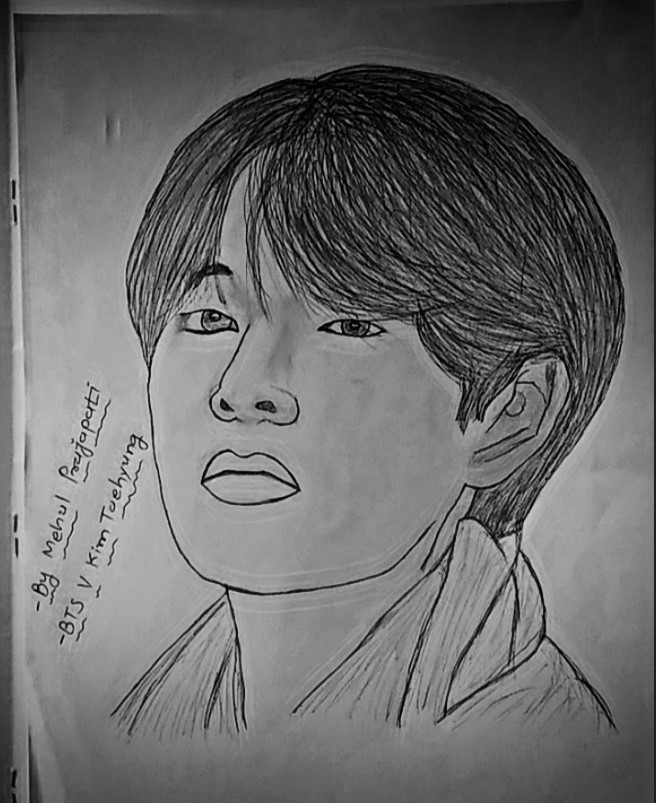 -By Mehul Prajapati
-BTS V Kim Taehyung